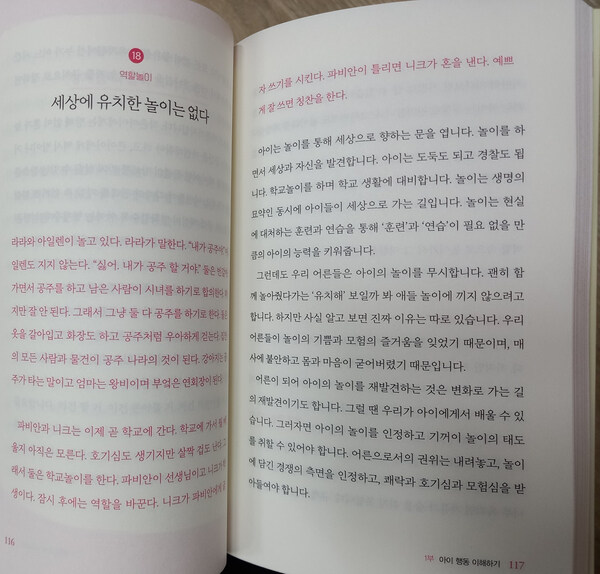 18
역할놀이
세상에 유치한 놀이는 없다
라라와 아일렌이 놀고 있다. 라라가 말한다. "내가 공주
일렌도 지지 않는다. "싫어. 내가 공주 할 거야." 둘은
가면서 공주를 하고 남은 사람이 시녀를 하기로
지만 잘 안 된다. 그래서 그냥 둘 다 공주를 하기로 한다.
옷을 갈아입고 화장도 하고 공주처럼 우아하게 걷는다.
의 모든 사람과 물건이 공주 나라의 것이 된다. 강아지는
주가 타는 말이고 엄마는 왕비이며 부엌은 연회장이 된다.
파비안과 니크는 이제 곧 학교에 간다. 학교에 가서
울지 아직은 모른다. 호기심도 생기지만 살짝 겁도
래서 둘은 학교놀이를 한다. 파비안이 선생님이고 니크가
생이다. 잠시 후에는 역할을 바꾼다. 니크가 파비안에게
116
자 쓰기를 시킨다. 파비안이 틀리면 니크가 혼을 낸다. 예쁘
게 잘 쓰면 칭찬을 한다.
아이는 놀이를 통해 세상으로 향하는 문을 엽니다. 놀이를 하
면서 세상과 자신을 발견합니다. 아이는 도둑도 되고 경찰도 됩
니다. 학교놀이를 하며 학교 생활에 대비합니다. 놀이는 생명의
묘약인 동시에 아이들이 세상으로 가는 길입니다. 놀이는 현실
에 대처하는 훈련과 연습을 통해 '훈련'과 '연습'이 필요 없을 만
큼의 아이의 능력을 키워줍니다.
그런데도 우리 어른들은 아이의 놀이를 무시합니다. 괜히 함
께 놀아줬다가는 '유치해' 보일까 봐 애들 놀이에 끼지 않으려고
합니다. 하지만 사실 알고 보면 진짜 이유는 따로 있습니다. 우리
어른들이 놀이의 기쁨과 모험의 즐거움을 잊었기 때문이며, 매
사에 불안하고 몸과 마음이 굳어버렸기 때문입니다.
어른이 되어 아이의 놀이를 재발견하는 것은 변화로 가는 길
의 재발견이기도 합니다. 그럴 땐 우리가 아이에게서 배울 수 있
습니다. 그러자면 아이의 놀이를 인정하고 기꺼이 놀이의 태도
를 취할 수 있어야 합니다. 어른으로서의 권위는 내려놓고, 놀이
에 담긴 경쟁의 측면을 인정하고, 쾌락과 호기심과 모험심을 받
아들여야 합니다.
1부 아이 행동 이해하기 117